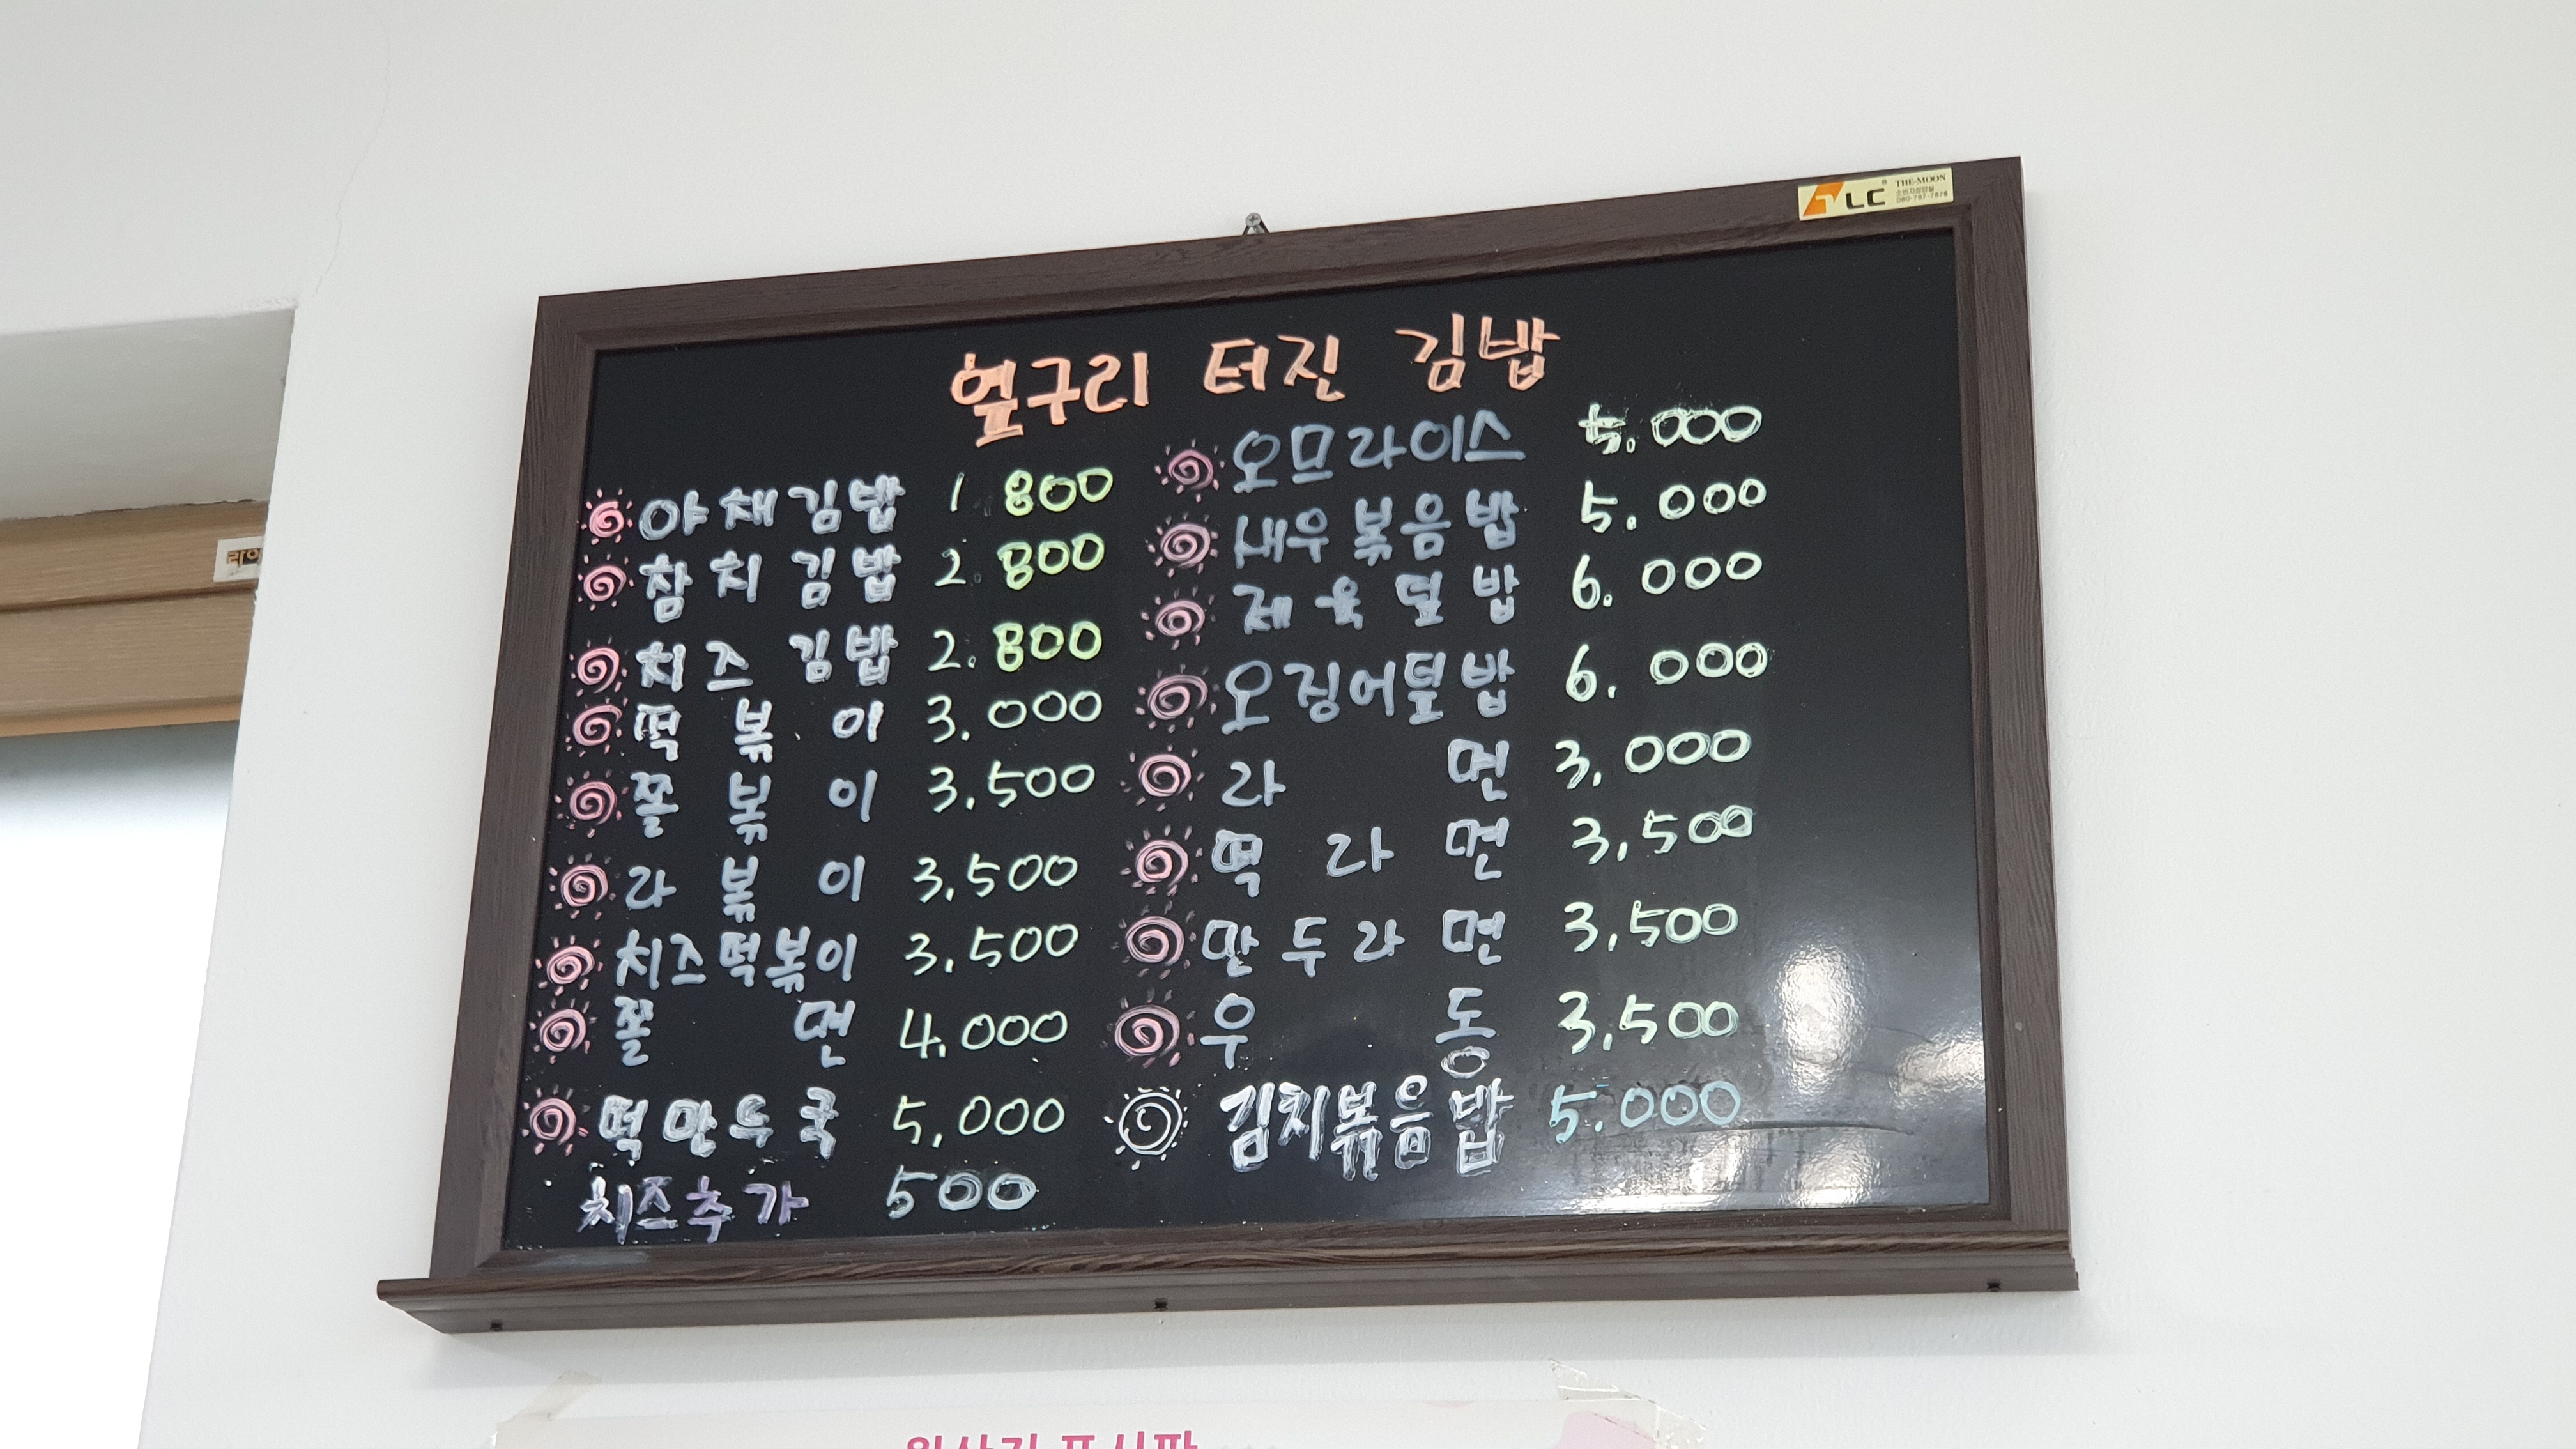 LC THE-MOON
소비자상담실
080-787-7878
옆구리 터진 김밥
야채김밥 1.800
참치김밥 2.800
치즈김밥 2.800
떡볶이 3.000
쫄볶이 3.500
라볶이 3.500
치즈떡볶이 3.500
쫄면 4.000
떡만두국 5,000
치즈추가 500
오므라이스 5.000
새우볶음밥 5.000
제육덮밥 6.000
오징어덮밥 6.000
라면 3,000
떡라면 3,500
만두라면 3,500
우동 3,500
김치볶음밥 5.000